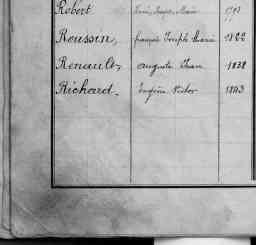 Robert Marie 1793
Roussin, françois Joseph Marie 1822
Renault, auguste Jean 1838
Richard. Eugène Victor 1843